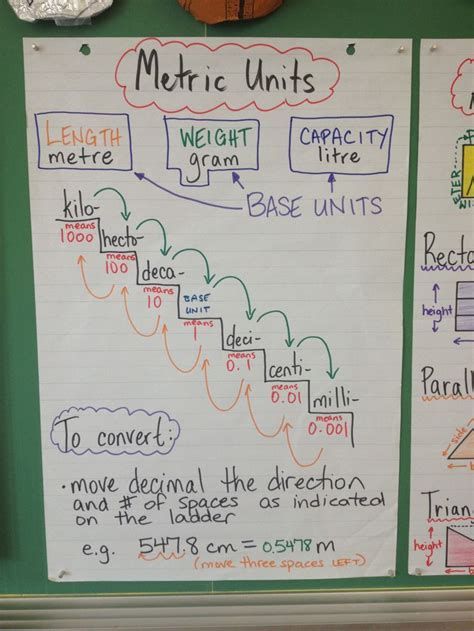 Metric Units
LENGTH
metre
WEIGHT
gram
CAPACITY
litre
BASE UNITS
kilo-
means
1000
hecto-
means
100
deca-
means
10
BASE
UNIT
means
1
deci-
means
0.1
centi-
means
0.01
milli-
means
0.001
To convert:
• move decimal the direction
and # of spaces as indicated
on the ladder
e.g. 547.8 cm = 0.5478 m
(move three spaces LEFT)
ETER
Recta
height
Parall
side
Trian
height